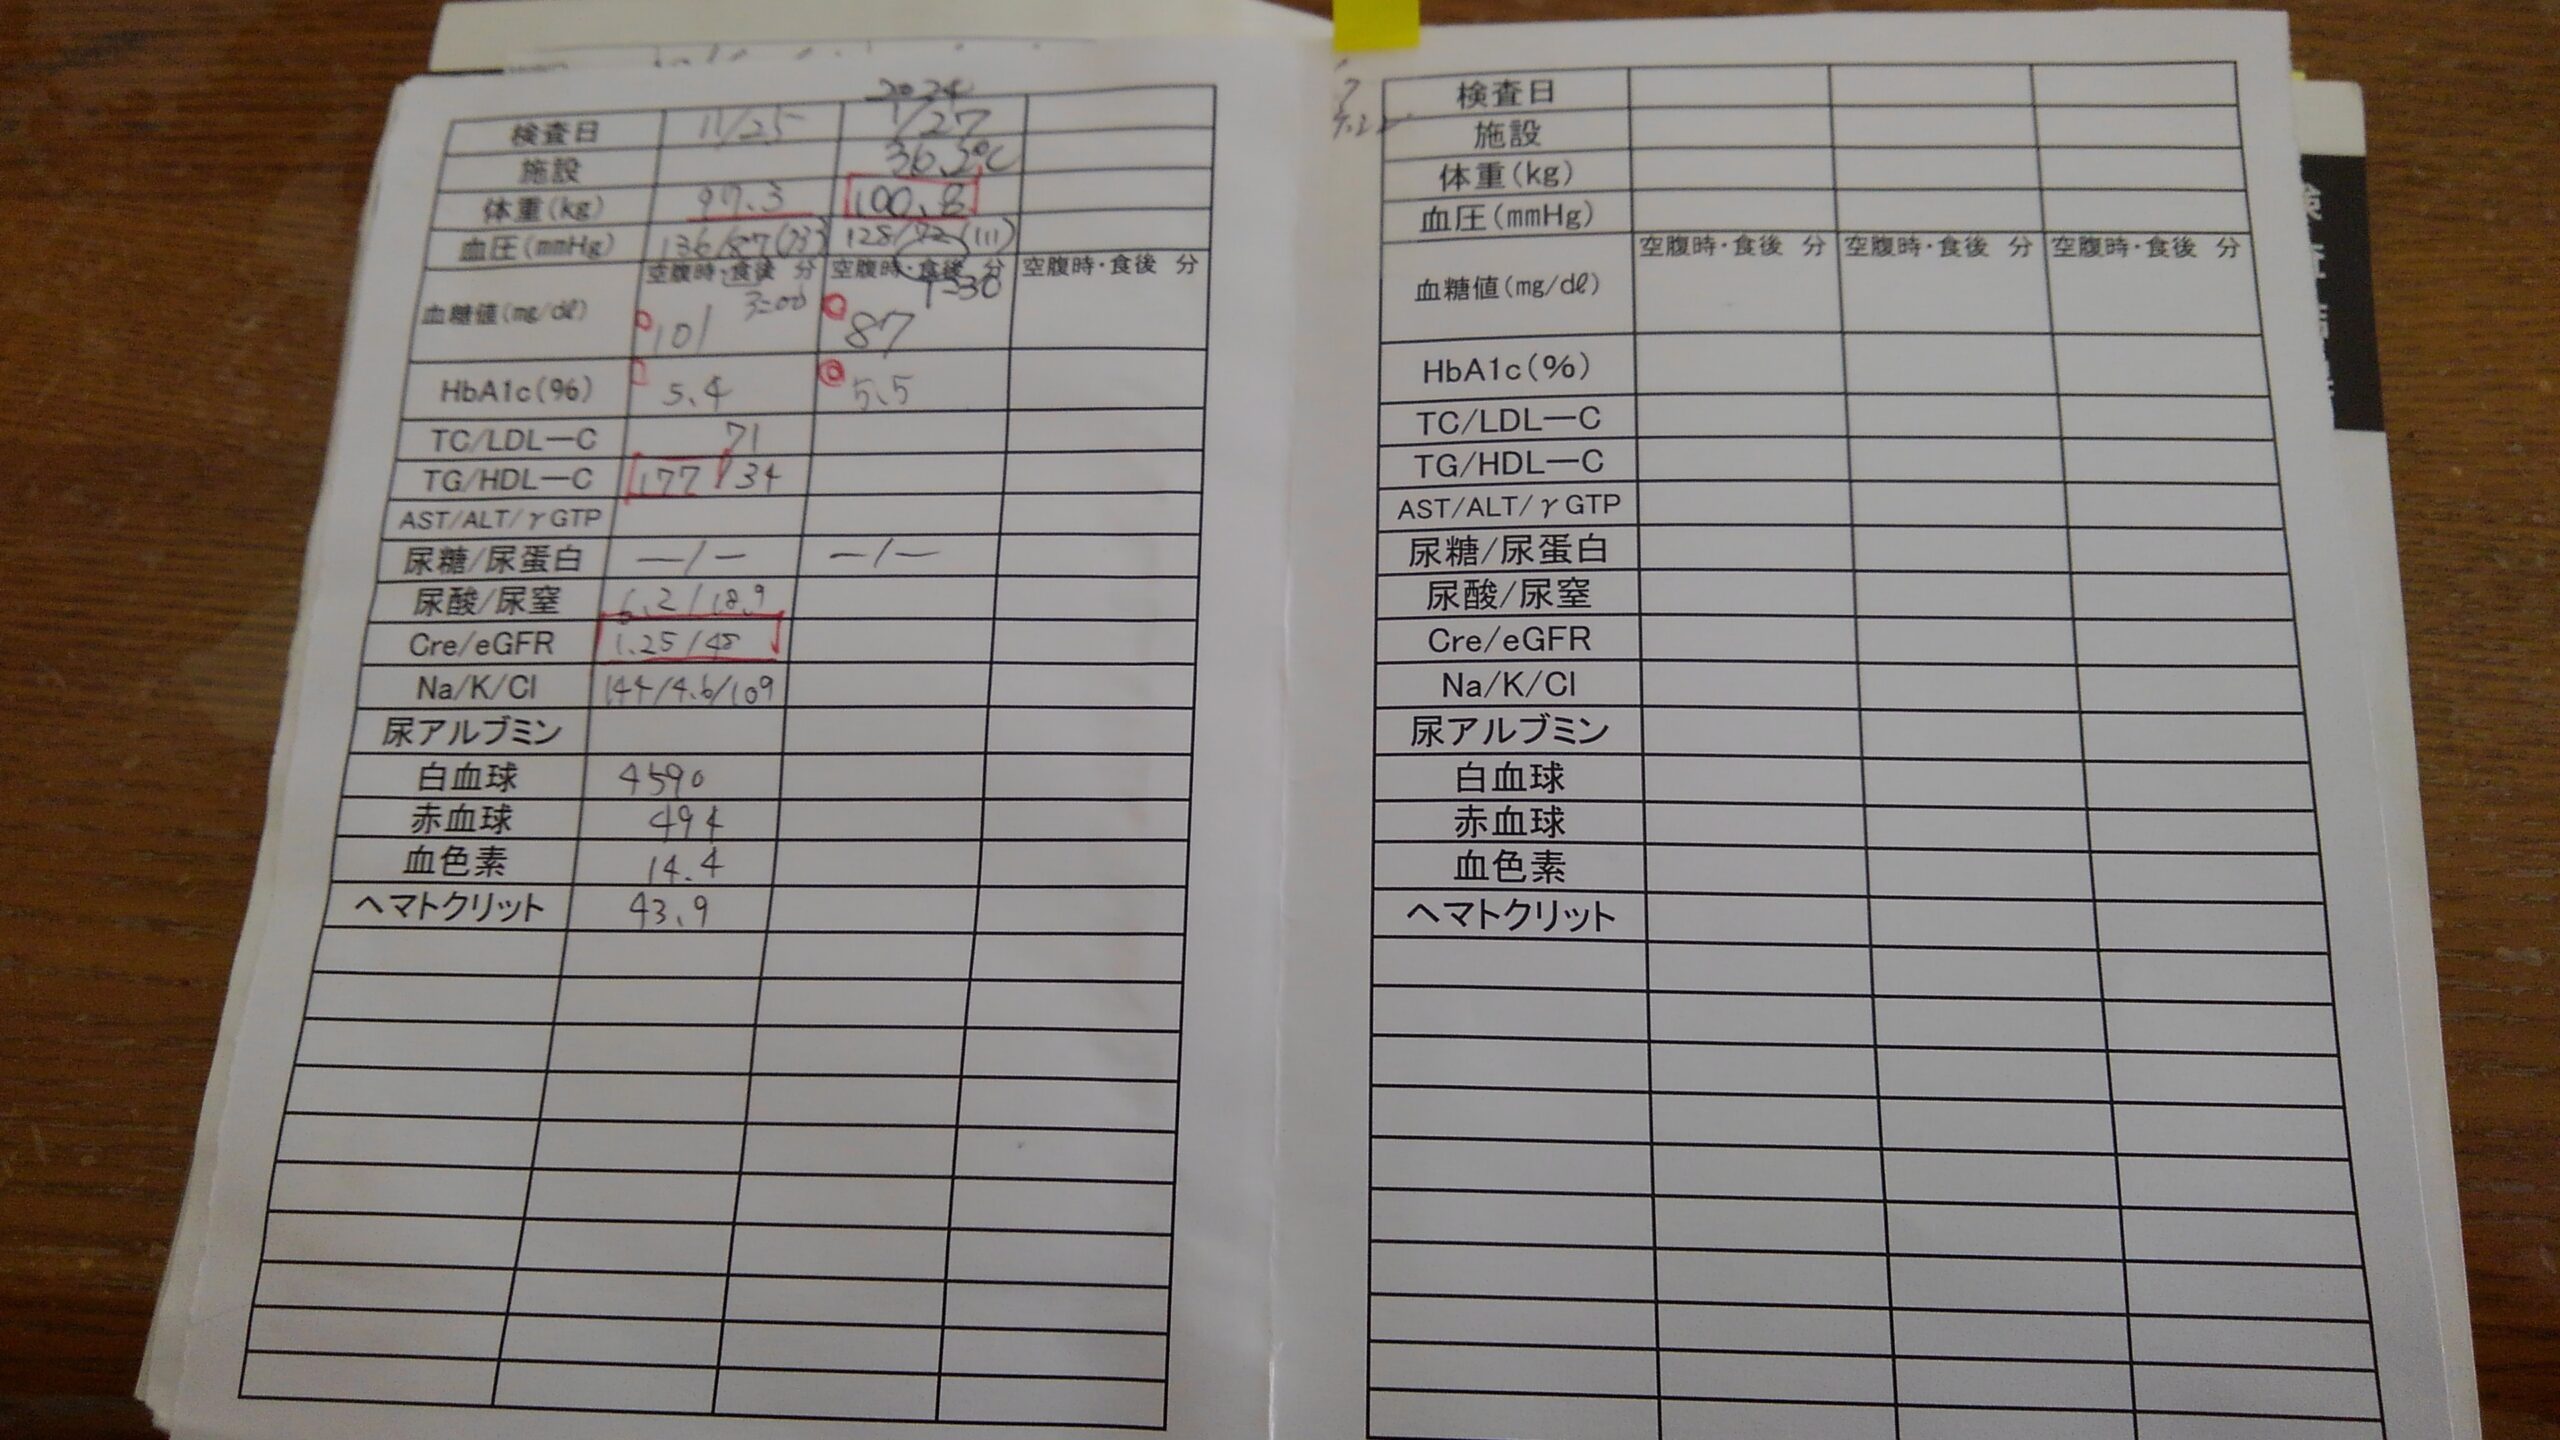 2024
検査日 11/25 1/27
施設 36.2℃
体重(kg) 97.3 100.8
血圧(mmHg) 136/87 128/ (111)
空腹時・食後 分 空腹時・食後 分 空腹時・食後 分
3:00 1:30
血糖値(mg/dℓ) 101 87
HbA1c(%) 5.4 5.5
TC/LDL―C 71
TG/HDL―C 177/34
AST/ALT/γGTP
尿糖/尿蛋白 ―/― ―/―
尿酸/尿窒 6.2/18.9
Cre/eGFR 1.25/48
Na/K/Cl 144/4.6/109
尿アルブミン
白血球 4590
赤血球 494
血色素 14.4
ヘマトクリット 43.9
検査日
施設
体重(kg)
血圧(mmHg)
空腹時・食後 分 空腹時・食後 分 空腹時・食後 分
血糖値(mg/dℓ)
HbA1c(%)
TC/LDL―C
TG/HDL―C
AST/ALT/γGTP
尿糖/尿蛋白
尿酸/尿窒
Cre/eGFR
Na/K/Cl
尿アルブミン
白血球
赤血球
血色素
ヘマトクリット